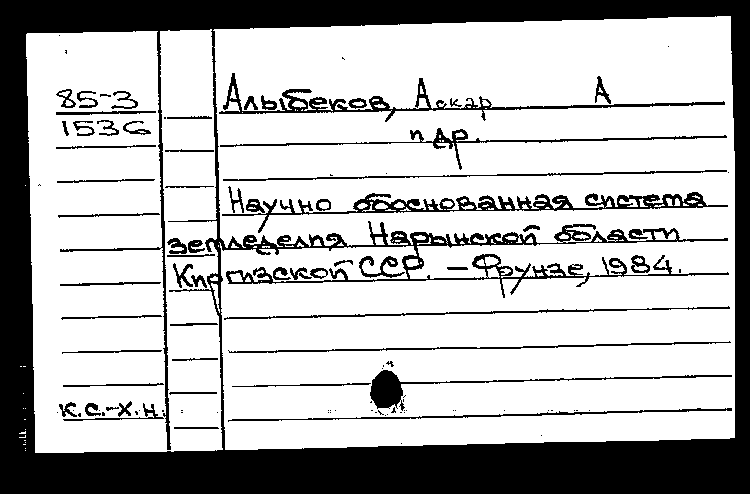 85-3 Алыбеков, Аскар А
1536 и др.
Научно обоснованная система
земледелия Нарынской области
Киргизской ССР. – Фрунзе, 1984.
к.с.-х.н.